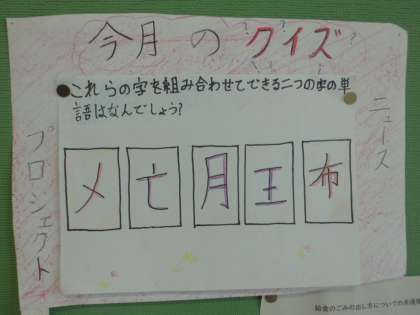 今月のクイズ
? ? ?
これらの字を組み合わせてできる二つの虫の単
語はなんでしょう?
メ 亡 月 王 布
プロジェクト
ニュース
給食のごみの出し方についての